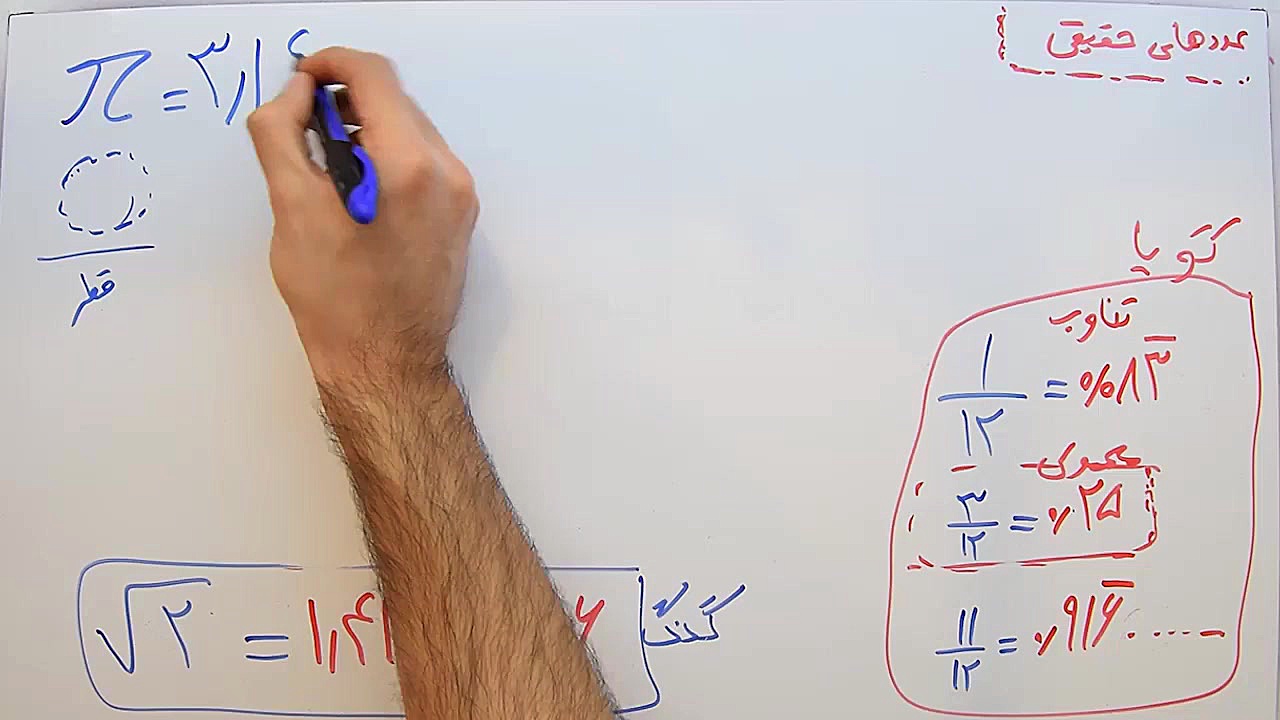 عددهای حقیقی
π = ۳٫۱۴
قطر
گویا
تناوب
۱/۱۲ = ۰٫۰۸۳̅
مختومی
۳/۱۲ = ٫۲۵
۱۱/۱۲ = ٫۹۱۶̅ .....
√۲ = ۱٫۴۱
گنگ